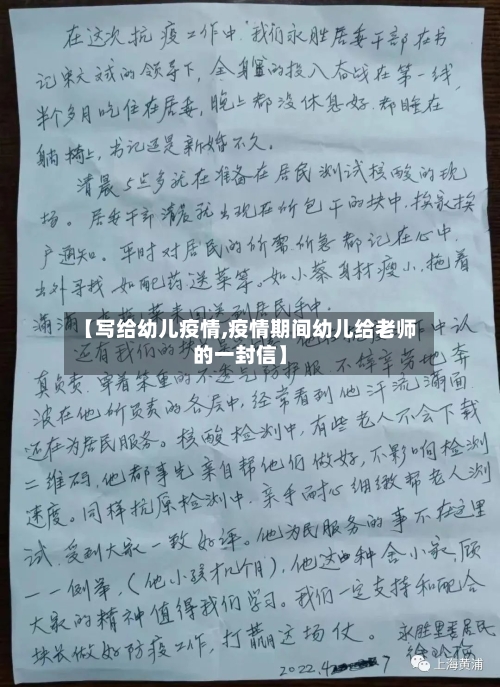 在这次抗疫工作中，我们永胜居委干部在书
记宋文斌的领导下，全身心的投入奋战在第一线，
半个多月吃住在居委，晚上都没休息好，都睡在
躺椅上，书记还是新婚不久。
清晨5点多就在准备在居民测试核酸的现
场。居委干部清晨就出现在所包干的块中，挨家挨
户通知。平时对居民的所需所急都记在心中，
出外寻找，如配药、送菜等。如小蔡身材瘦小，拖着
满满
【写给幼儿疫情,疫情期间幼儿给老师
的一封信】
还有我们的块长
作中认
真负责，穿着笨重的不透气防护服，不辞辛劳地奔
波在他所负责的各层中，经常看到他汗流满面
还在为居民服务。核酸检测中，有些老人不会下载
二维码，他都事先亲自帮他们做好，不影响检测
速度。同样抗原检测中，亲手耐心细致帮老人测
试，受到大家一致好评。他为民服务的事不在这里
一一例举，（他小孩才几个月），他这种舍小家，顾
大家的精神值得我们学习。我们一定支持和配合
块长做好防疫工作，打赢这场仗。
永胜里委居民
2022.4
7
上海黄浦